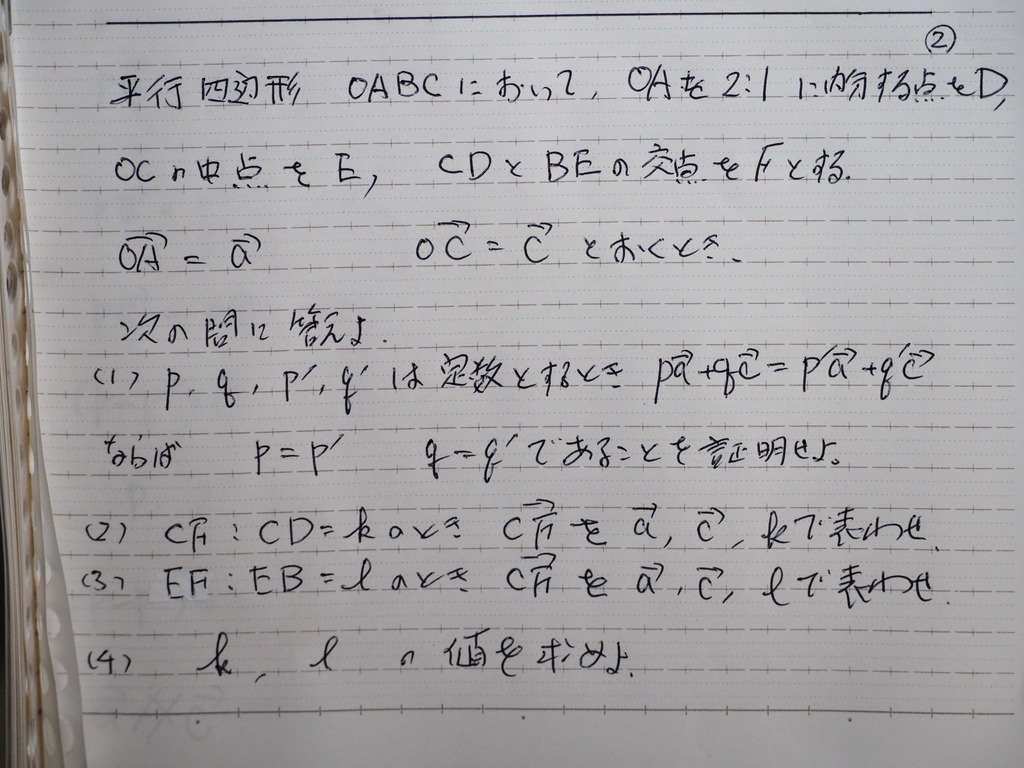 ②
平行四辺形 OABCにおいて, OAを2:1に内分する点をD,
OCの中点をE, CDとBEの交点をFとする.
OA→ = a→ OC→ = c→ とおくとき、
次の問に答えよ.
(1) p, q, p′, q′ は定数とするとき pa→+qc→=p′a→+q′c→
ならば p=p′ q=q′であることを証明せよ。
(2) CF:CD=kのとき CF→を a→, c→, kで表わせ.
(3) EF:EB=lのとき CF→を a→, c→, lで表わせ.
(4) k, l の値を求めよ.